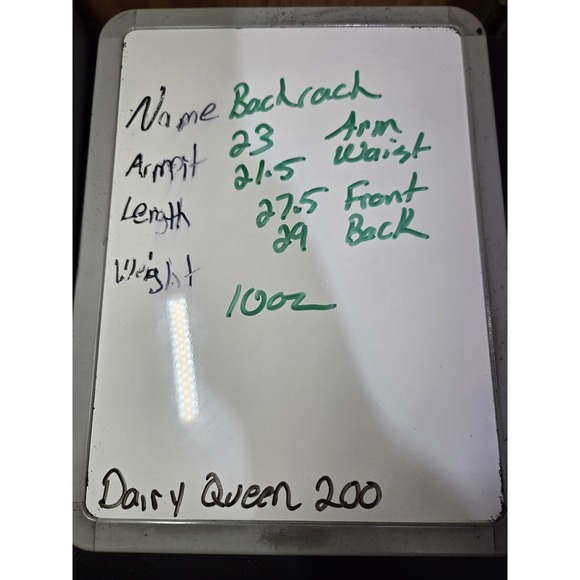 Name Bachrach
Armpit 23 Arm
21.5 Waist
Length 27.5 Front
29 Back
Weight
10oz
Dairy Queen 200